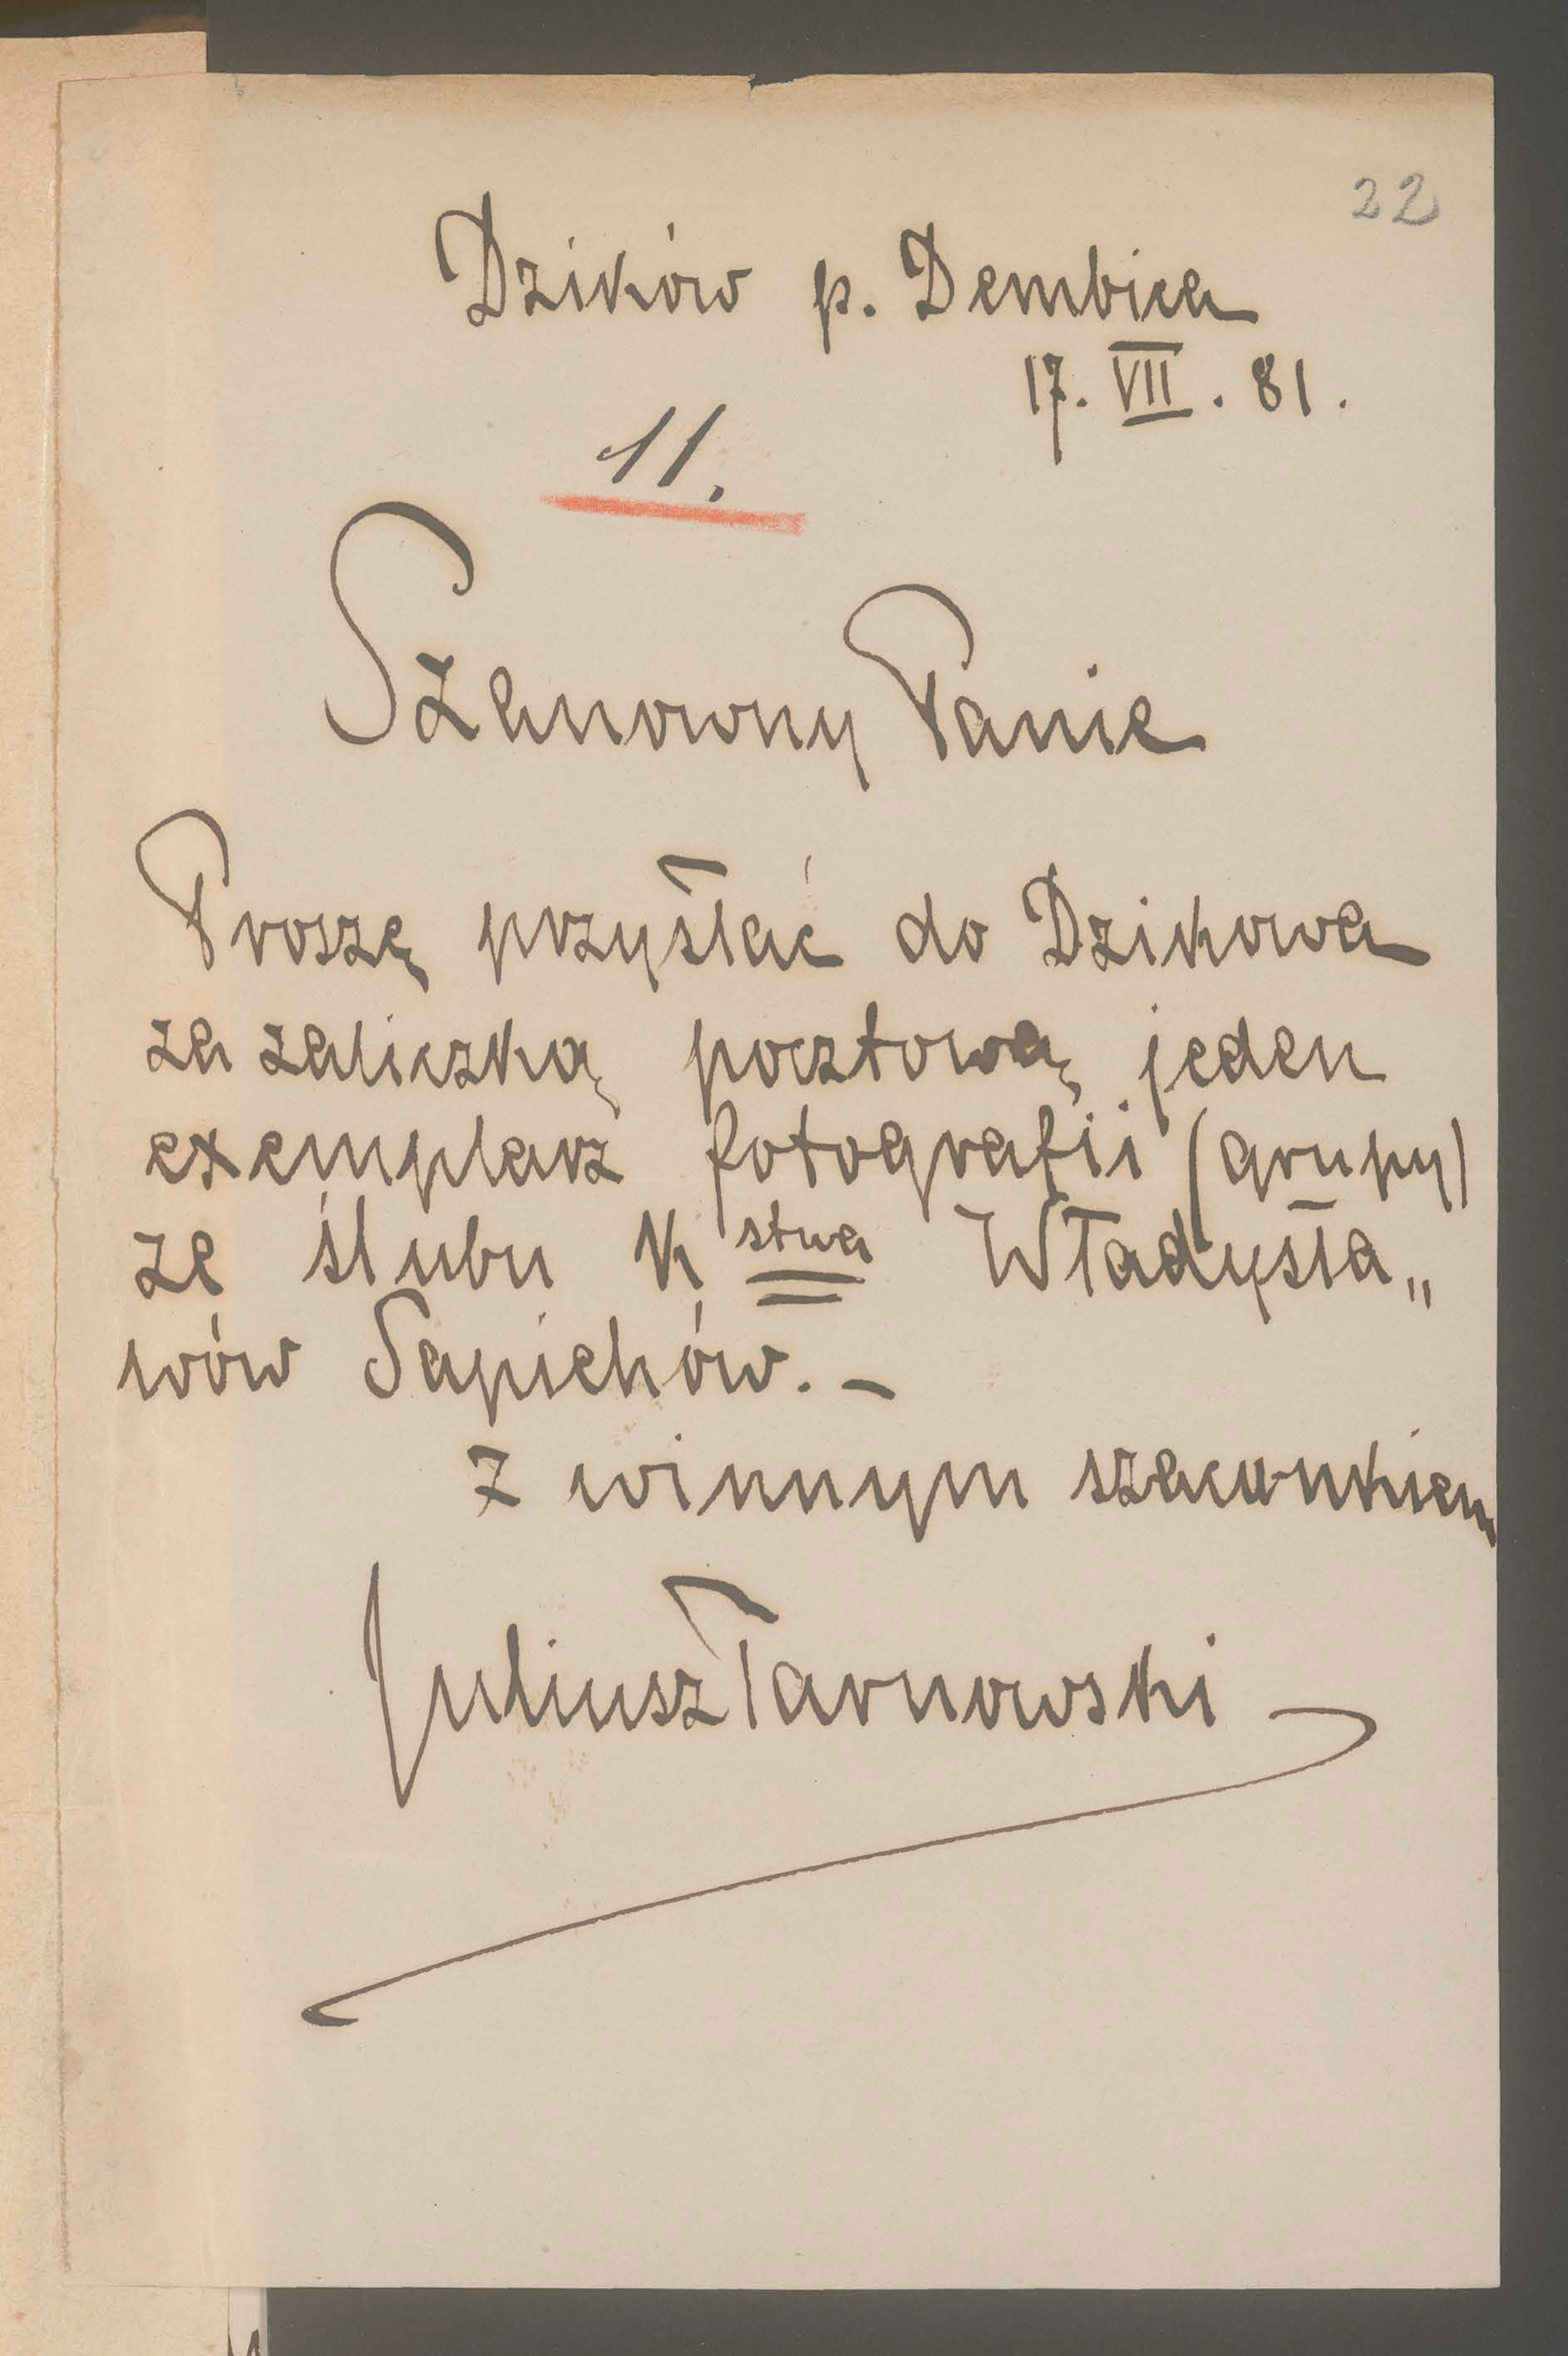 22
Dzików p. Dembica
17. VII. 81.
11.
Szanowny Panie
Proszę przysłać do Dzikowa
za zaliczką pocztową jeden
exemplarz fotografii (grupy)
ze ślubu K stwa Władysła„
wów Sapiehów. –
z winnym szacunkiem
Juliusz Tarnowski